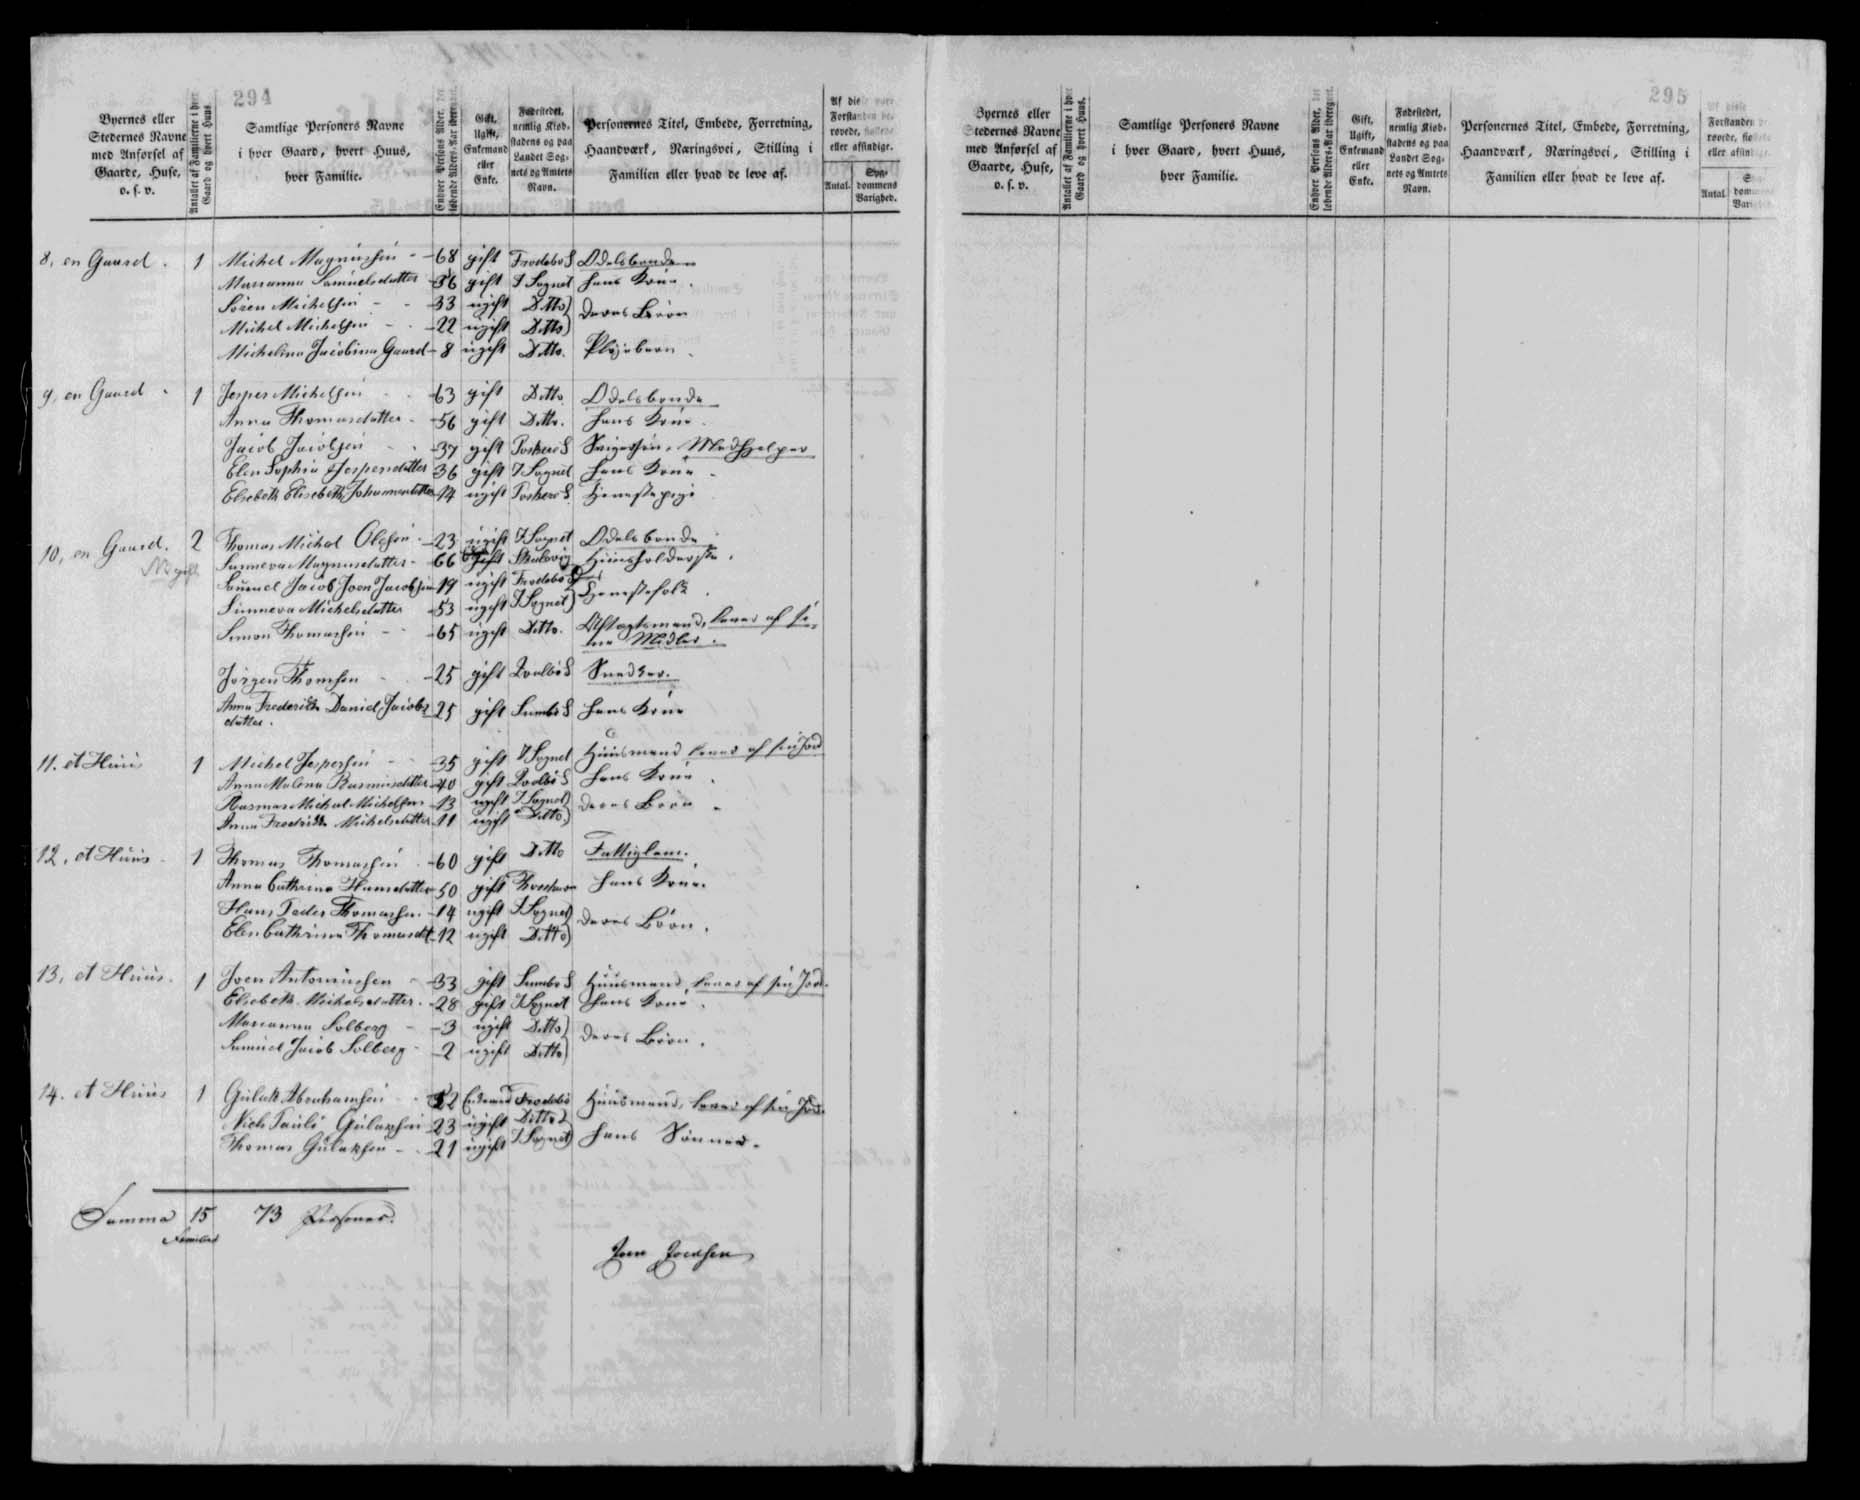 294
Byernes eller Stedernes Navne med Anførsel af Gaarde, Huse, o. s. v.
Antallet af Familierne i hver Gaard og hvert Huus.
Samtlige Personers Navne i hver Gaard, hvert Huus, hver Familie.
Enhver Persons Alder, det løbende Alders-Aar iberegnet.
Gift, Ugift, Enkemand eller Enke.
Fødestedet, nemlig Kiøbstadens og paa Landet Sognets og Amtets Navn.
Personernes Titel, Embede, Forretning, Haandværk, Næringsvei, Stilling i Familien eller hvad de leve af.
Af disse vare Forstanden berøvede, fiollede eller afsindige.
Antal. Sygdommens Varighed.
8, en Gaard. 1 Michel Magnussen 68 gift Frodebo S Odelsbonde
Marianna Samuelsdatter 56 gift I Sognet hans Kone.
Sören Michelsen 33 ugift Ditto) deres Börn
Michel Michelsen 22 ugift Ditto)
Michelina Jacobina Gaard 8 ugift Ditto. Plejebarn
9, en Gaard 1 Jesper Michelsen 63 gift Ditto Odelsbonde
Anna Thomasdatter 56 gift Ditto. hans Kone.
Jacob Jacobsen 37 gift Porkere S Svigersön, Medhjelper
Elen Sophia Jespersdatter 36 gift I Sognet hans Kone
Elsebeth Elisebeth Johannesdatter 14 ugift Porkere S Tjenestepige
10, en Gaard. 2 Thomas Michal Olesen 23 ugift I Sognet Odelsbonde
Sunneva Magnusdatter 66 gift Huusholderske.
Samuel Jacob Joen Jacobsen 19 ugift Frodebo S
Sunneva Michelsdatter 53 ugift I Sognet) Tjenestefolk.
Simon Thomassen 65 ugift Ditto. Aftagtsmand, lever af si-
ne Midler.
Jörgen Thomsen 25 gift Qvalbö S Snedker.
Anna Frederikke Daniel Jacobs 25 gift Sumbö S hans Kone
datter.
11. et Huus 1 Michel Jespersen 35 gift I Sognet Huusmand lever af sin Jord
Anna Malena Rasmusdatter 40 gift Qvalbö S hans Kone.
Rasmus Michal Michelsen 13 ugift I Sognet) deres Börn
Anna Fredrikke Michelsdatter 11 ugift Ditto)
12, et Huus. 1 Thomas Thomassen 60 gift Ditto Fattiglem.
Anna Cathrina Hansdatter 50 gift Thorshavn hans Kone.
Hans Peder Thomassen 14 ugift I Sognet) deres Börn.
Elen Cathrina Thomasdt 12 ugift Ditto)
13, et Huus. 1 Joen Antoniussen 33 gift Sumbö S Huusmand, lever af sin Jord.
Elsebeth Michelsdatter 28 gift I Sognet hans Kone.
Marianna Solberg 3 ugift Ditto) deres Börn.
Samuel Jacob Solberg 2 ugift Ditto)
14. et Huus 1 Gulak Abrahamsen 52 Enkemand Frodebö Huusmand, lever af sin Jord.
Niels Pauli Gulaksen 23 ugift Ditto) hans Sönner.
Thomas Gulaksen 21 ugift I Sognet)
Summa 15 73 Personer.
Familier
295
Byernes eller Stedernes Navne med Anførsel af Gaarde, Huse, o. s. v.
Antallet af Familierne i hver Gaard og hvert Huus.
Samtlige Personers Navne i hver Gaard, hvert Huus, hver Familie.
Enhver Persons Alder, det løbende Alders-Aar iberegnet.
Gift, Ugift, Enkemand eller Enke.
Fødestedet, nemlig Kiøbstadens og paa Landet Sognets og Amtets Navn.
Personernes Titel, Embede, Forretning, Haandværk, Næringsvei, Stilling i Familien eller hvad de leve af.
Af disse Forstanden berøvede, fiollede eller afsindige.
Antal